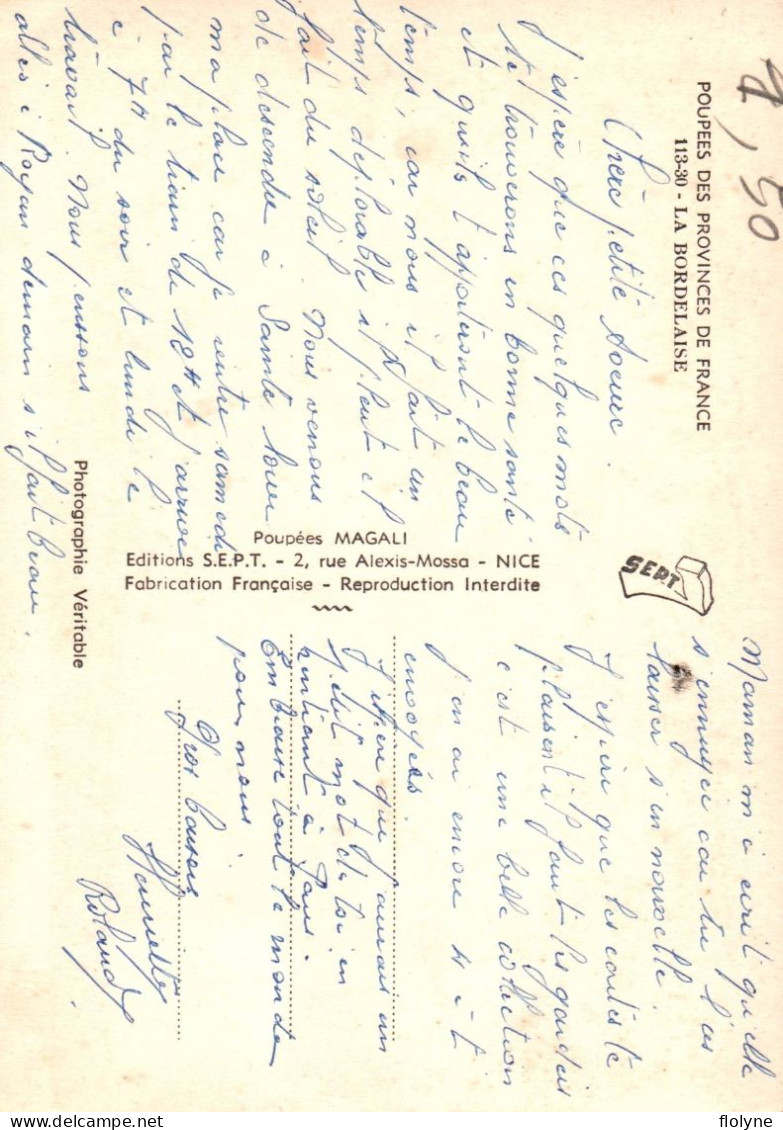 7,50
POUPEES DES PROVINCES DE FRANCE
113-30 - LA BORDELAISE
Chère petite soeur.
J'espère que ces quelques mots
te trouverons en bonne santé
et qu'ils t'apporteront le beau
temps, car nous il fait un
temps déplorable il pleut il
fait du soleil. Nous venons
de descendre à Sainte louer
ma place car je rentre samedi
par le train de 12H et j'arrive
à 7H du soir et lundi le
travail. Nous pensons
allés à Royan demain s'il fait beau.
Poupées MAGALI
Editions S.E.P.T. - 2, rue Alexis-Mossa - NICE
Fabrication Française - Reproduction Interdite
Photographie Véritable
SEPT
Maman m'a écrit qu'elle
s'ennuyer car tu l'as
laisser s'en nouvelle.
J'espère que les cartes te
plaisent il faut les garder
c'est une belle collection
j'en ai encore 4 à t
envoyés.
J'espère que j'aurais un
petit mot de toi en
rentrant à Paris.
Embrasse tout le monde
pour nous.
Gros baisers
Rolande
flolyne